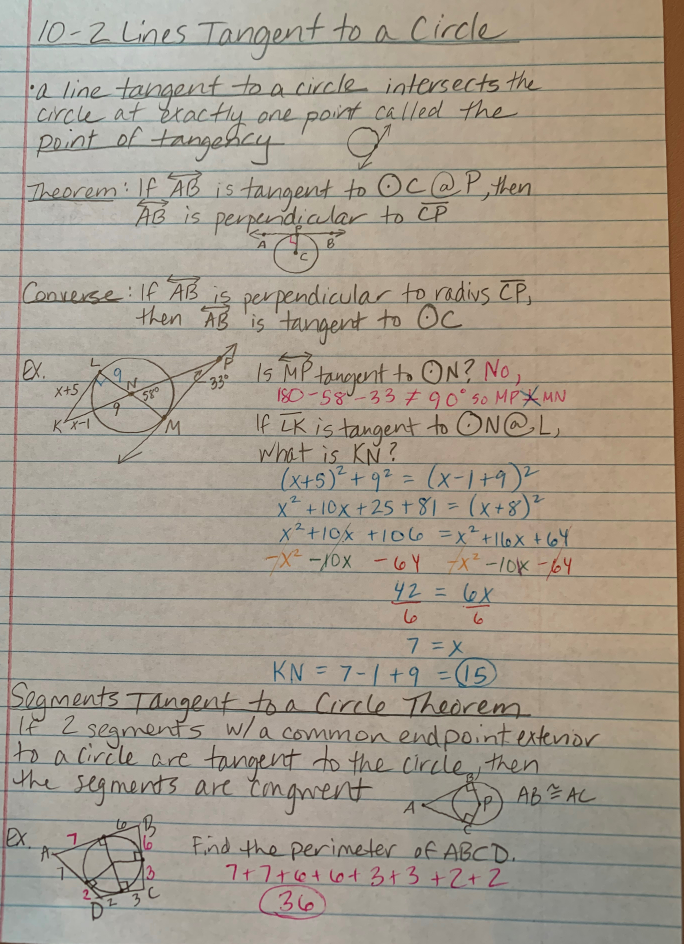 10-2 Lines Tangent to a Circle
·a line tangent to a circle intersects the
circle at exactly one point called the
point of tangency
Theorem: If AB is tangent to ⊙C @ P, then
AB is perpendicular to CP
P
A B
C
Converse: If AB is perpendicular to radius CP,
then AB is tangent to ⊙C
Ex. L 9 N 58° P 33° x+5 9 K x-1 M
Is MP tangent to ⊙N? No,
180-58-33 ≠ 90° so MP ⊥̸ MN
If LK is tangent to ⊙N @ L,
what is KN?
(x+5)² + 9² = (x-1+9)²
x² + 10x + 25 + 81 = (x+8)²
x² + 10x + 106 = x² + 16x + 64
-x² -10x -64 -x² -10x -64
42 = 6x
6 6
7 = x
KN = 7-1+9 = 15
Segments Tangent to a Circle Theorem
If 2 segments w/a common endpoint exterior
to a circle are tangent to the circle, then
the segments are congruent
A B P C AB ≅ AC
Ex. A 7 6 B 6 7 3 2 D 2 3 C
Find the perimeter of ABCD.
7+7+6+6+3+3+2+2
36